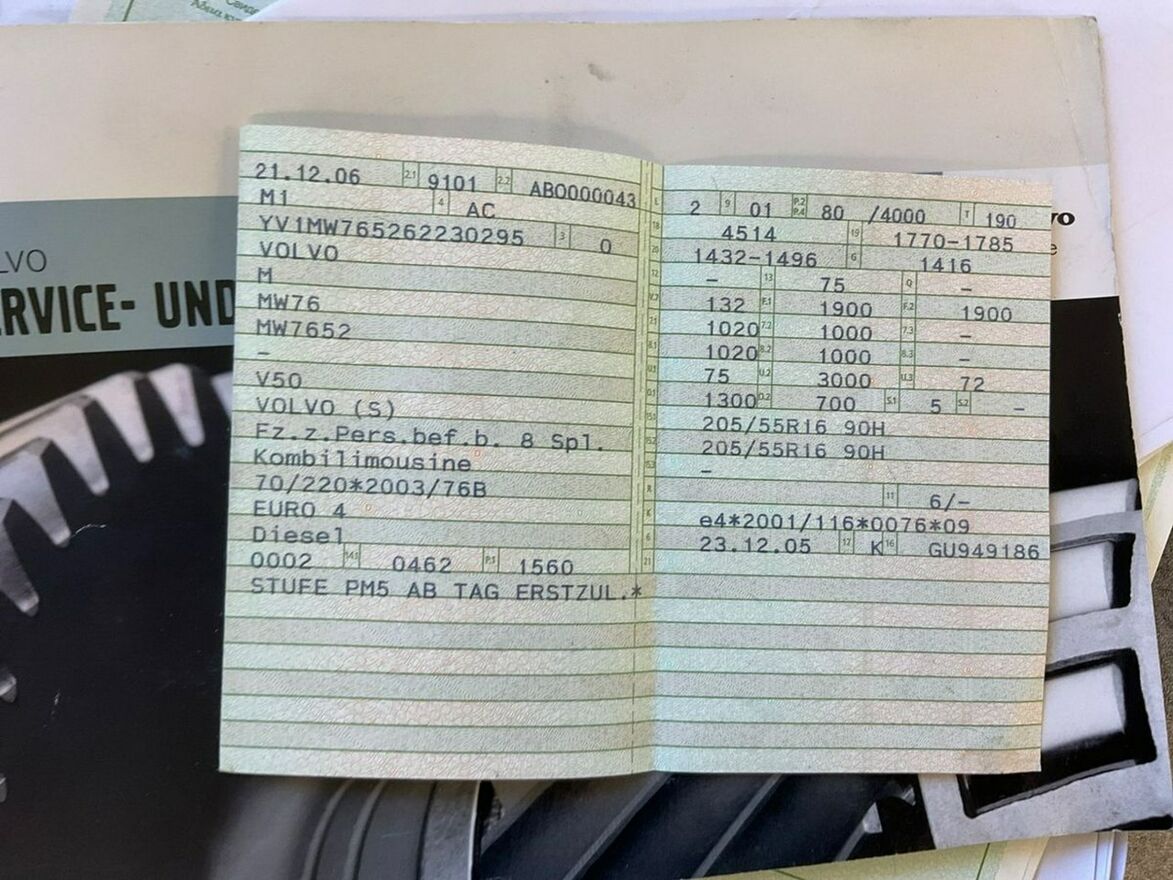 LVO
ERVICE- UND
21.12.06 2.1 9101 2.2 ABO000043
M1 4 AC
YV1MW765262230295 3 0
VOLVO
M
MW76
MW7652
–
V50
VOLVO (S)
Fz.z.Pers.bef.b. 8 Spl.
Kombilimousine
70/220*2003/76B
EURO 4
Diesel
0002 14.1 0462 P.1 1560
STUFE PM5 AB TAG ERSTZUL.*
L 2 9 01 P.2 P.4 80 /4000 T 190
18 4514 19 1770-1785
20 1432-1496 G 1416
12 – 13 75 Q –
V.7 132 F.1 1900 F.2 1900
7.1 1020 7.2 1000 7.3 –
8.1 1020 8.2 1000 8.3 –
U.1 75 U.2 3000 U.3 72
O.1 1300 O.2 700 S.1 5 S.2 –
15.1 205/55R16 90H
15.2 205/55R16 90H
15.3 –
R 11 6/–
K e4*2001/116*0076*09
6 23.12.05 17 K 16 GU949186
21